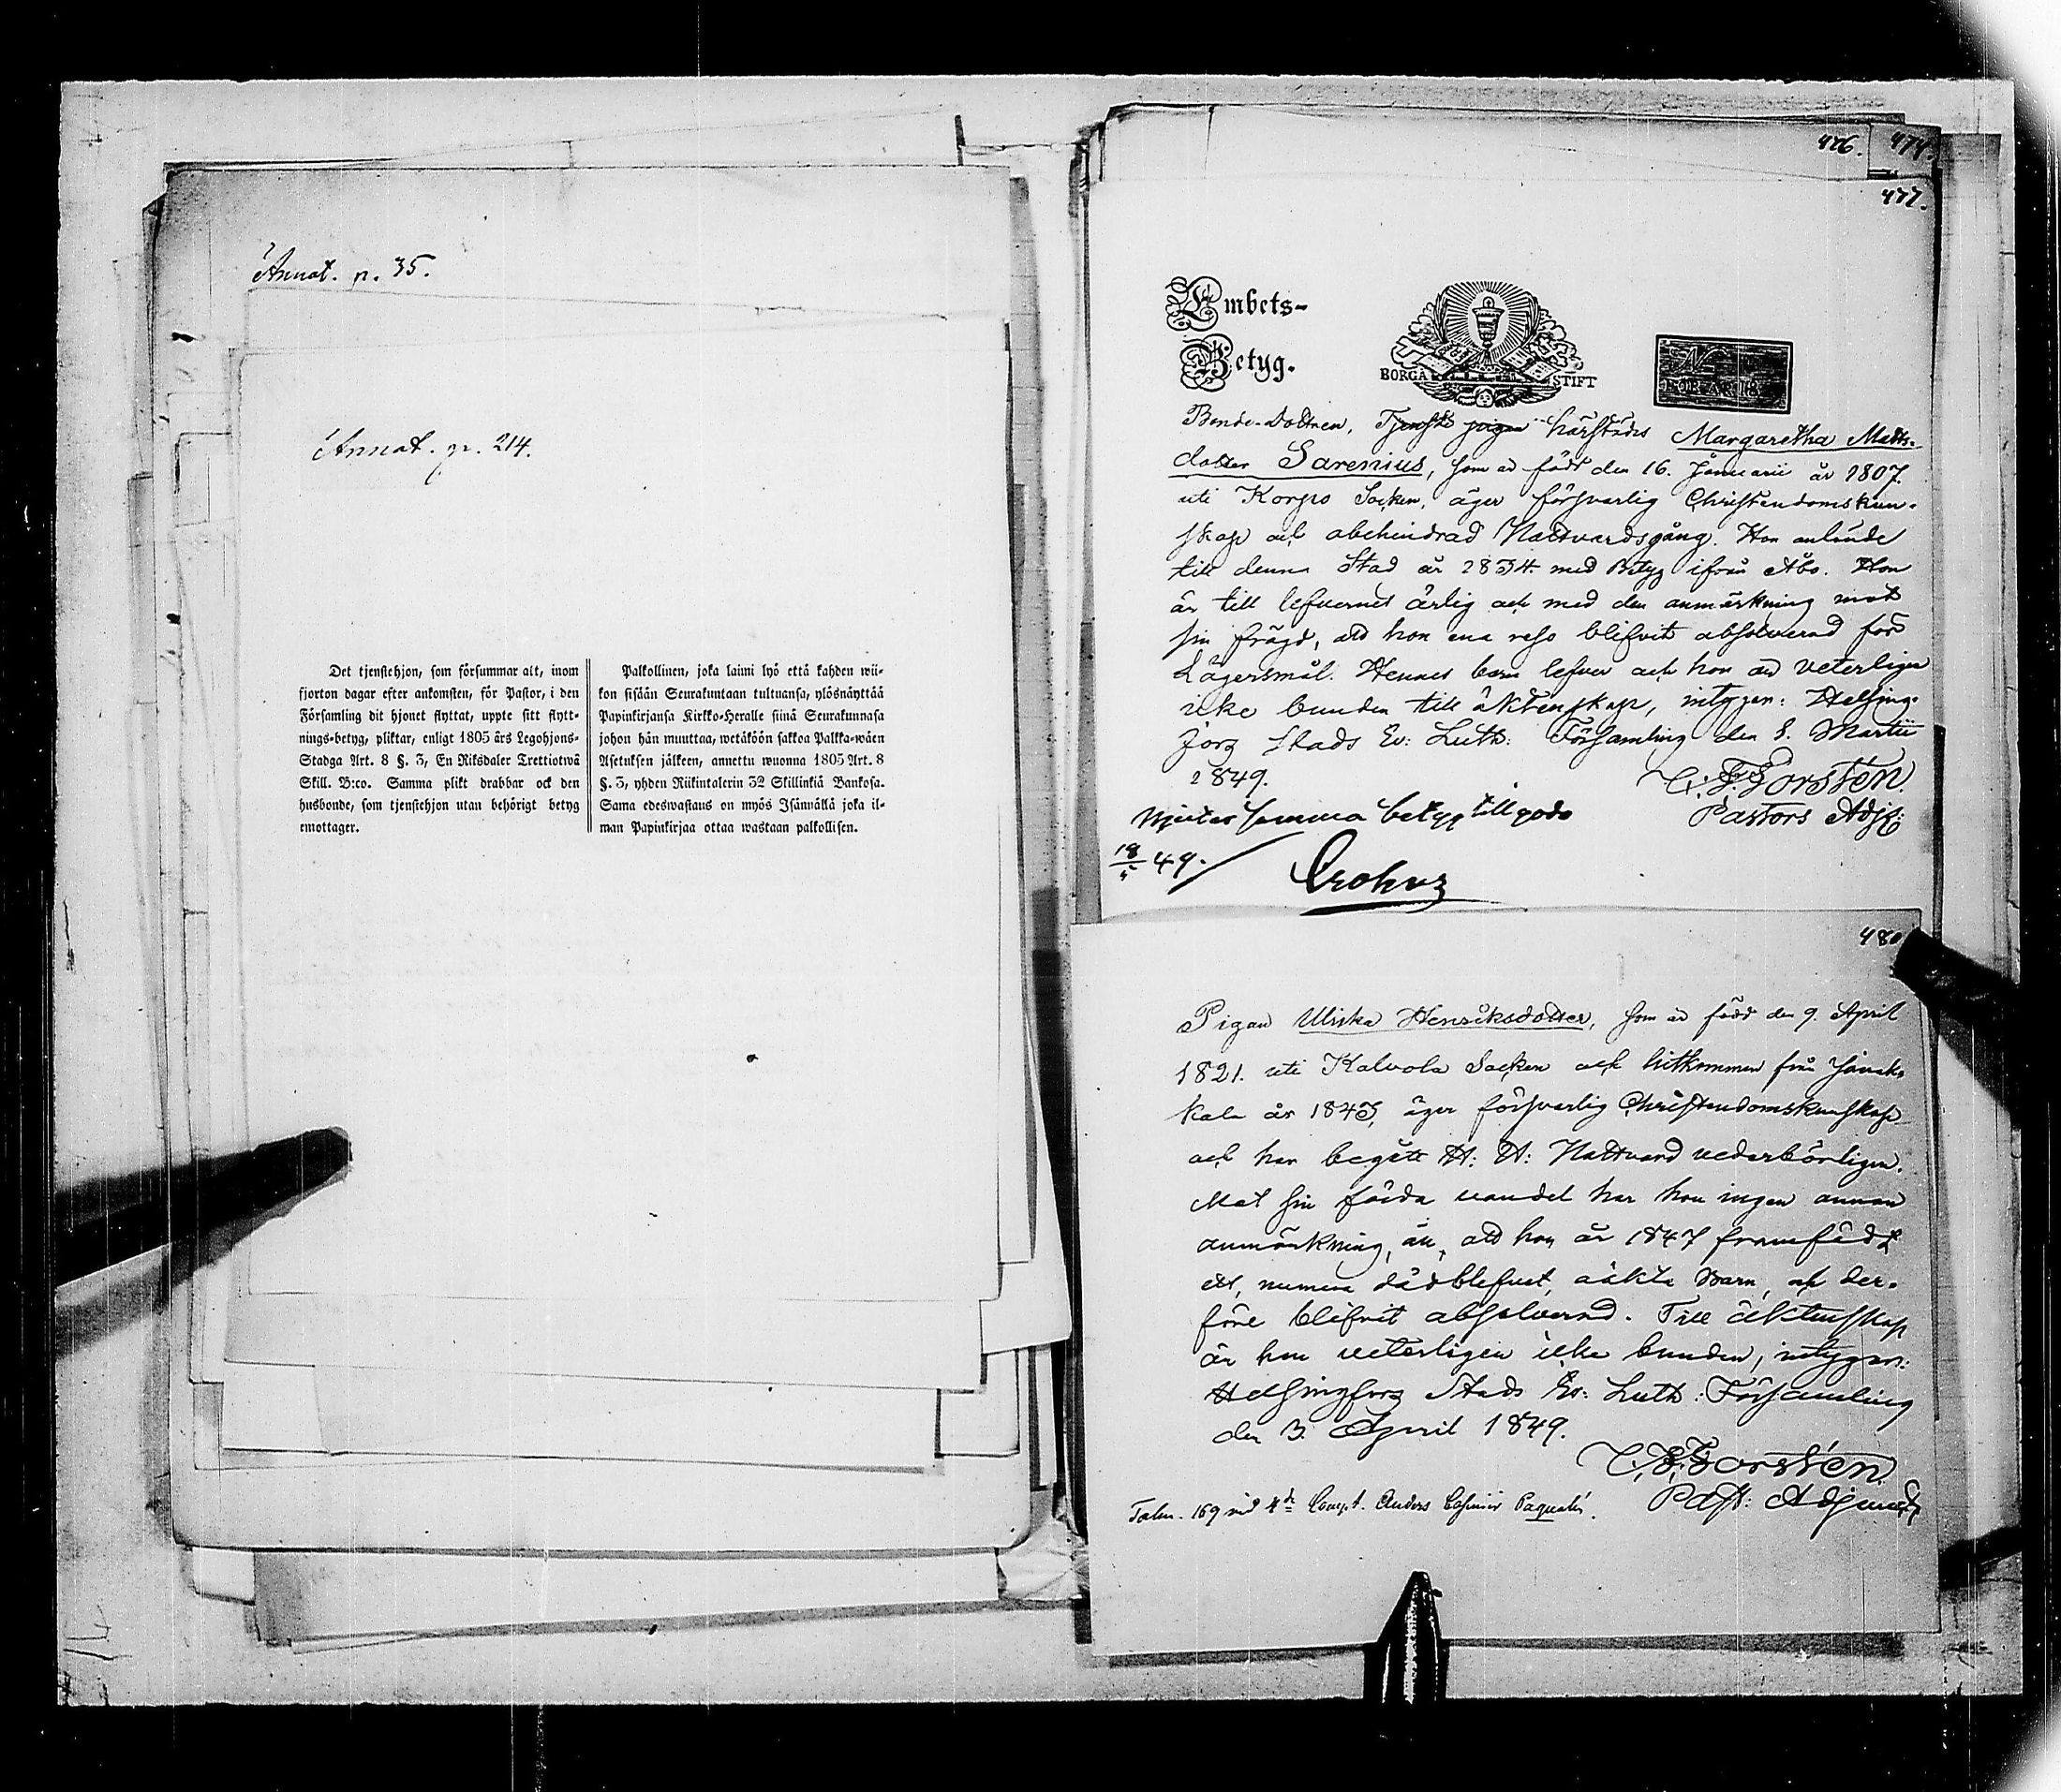 Annot. p. 35.
Annot. p. 214.
Det tjenstehjon, som försummar att, inom
fjorton dagar efter ankomsten, för Pastor, i den
Församling dit hjonet flyttat, uppte sitt flytt-
nings-betyg, pliktar, enligt 1805 års Legohjons-
Stadga Art. 8 §. 3, En Riksdaler Trettiotwå
Skill. B:co. Samma plikt drabbar ock den
husbonde, som tjenstehjon utan behörigt betyg
emottager.
Palkollinen, joka laimi lyö että kahden wii-
kon sisään Seurakuntaan tultuansa, ylösnäyttää
Papinkirjansa Kirkko-Heralle siinä Seurakunnasa
johon hän muuttaa, wetäköön sakkoa Palkka-wäen
Asetuksen jälkeen, annettu wuonna 1805 Art. 8
§. 3, yhden Riikintalerin 32 Skillinkiä Bankosa.
Sama edeswastaus on myös Isännällä joka il-
man Papinkirjaa ottaa wastaan palkollisen.
476. 474.
477.
Embets-
Betyg.
BORGÅ STIFT
Bonde-Dottren, Tjenste pigan härstädes Margaretha Matts-
dotter Sarenius, som är född den 16. Januarii år 1807.
uti Korpo Socken, äger försvarlig Christendomskun-
skap och obehindrad Nattvardsgång. Hon anlände
till denna Stad år 1834. med Betyg ifrån Åbo. Hon
är till lefvernet ärlig och med den anmärkning mot
sin frägd, att hon ena reso blifvit absolverad för
Lägersmål. Hennes barn lefver och hon är veterligen
icke bunden till äktenskap, intygar: Helsing-
fors Stads Ev: Luth: Församling den 8. Martii
1849.
C. F. Forstén.
Pastors Adj:
Njuter samma betyg till godo
18/5 49.
Crohns
480
Pigan Ulrika Henriksdotter, som är född den 9. April
1821. uti Kalvola Socken och hitkommen från Janak-
kala år 1845, äger försvarlig Christendomskunskap
och har begått H: H: Nattvard vederbörligen.
Mot sin förda vandel har hon ingen annan
anmärkning, än, att hon år 1847 framfödt
ett, numera dödblefvet, oäkta barn, och der-
före blifvit absolverad. Till äktenskap
är hon veterligen icke bunden, intygar:
Helsingfors Stads Ev: Luth: Församling
den 3. April 1849.
C. F. Forstén.
Past: Adjunct
169 vid 4de Comp. Anders Casimir